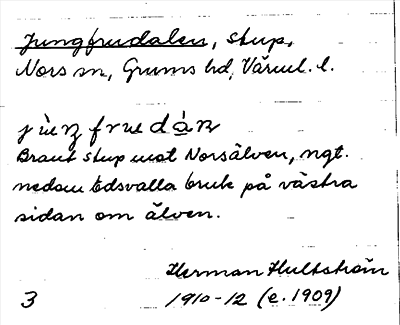 Jungfrudalen, stup,
Nors sn, Grums hd, Värml. l.
Brant stup mot Norsälven, ngt.
nedom Edsvalla bruk på västra
sidan om älven.
Herman Hultström
3 1910-12 (e. 1909)